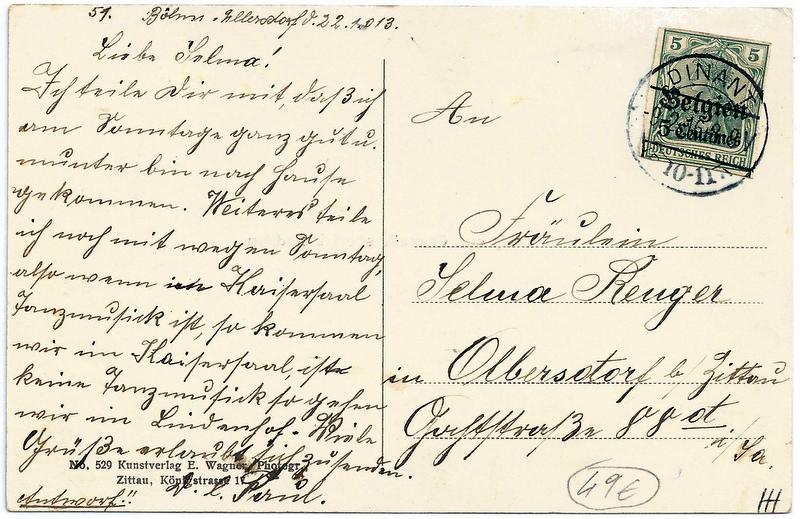 51. Böhm. Ullersdorf d. 22.1.013.
Liebe Selma!
Ich teile Dir mit, daß ich
am Sonntage ganz gut u.
munter bin nach Hause
gekommen. Weiteres teile
ich noch mit wegen Sonntag,
also wenn im Kaisersaal
Tanzmusick ist, so kommen
wir im Kaisersaal, ist
keine Tanzmusick so gehen
wir im Lindenhof. Viele
Grüße erlaubt sich zusenden.
Paul.
Antwort!!
No. 529 Kunstverlag E. Wagner, Photogr.
Zittau, Königstrasse
An
Fräulein
Selma Renger
in Olbersdorf b/Zittau
straße 88 d
i/Sa.
5 5
Belgien
5 Centimes
DEUTSCHES REICH
DINANT
10-11
49€